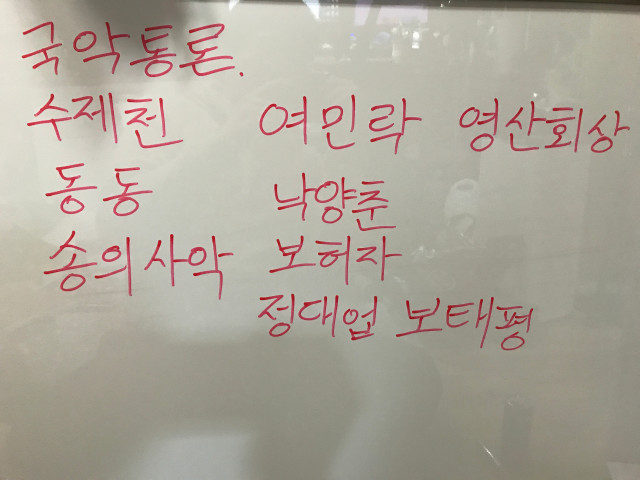 국악통론.
수제천 여민락 영산회상
동동 낙양춘
송의사악 보허자
정대업 보태평